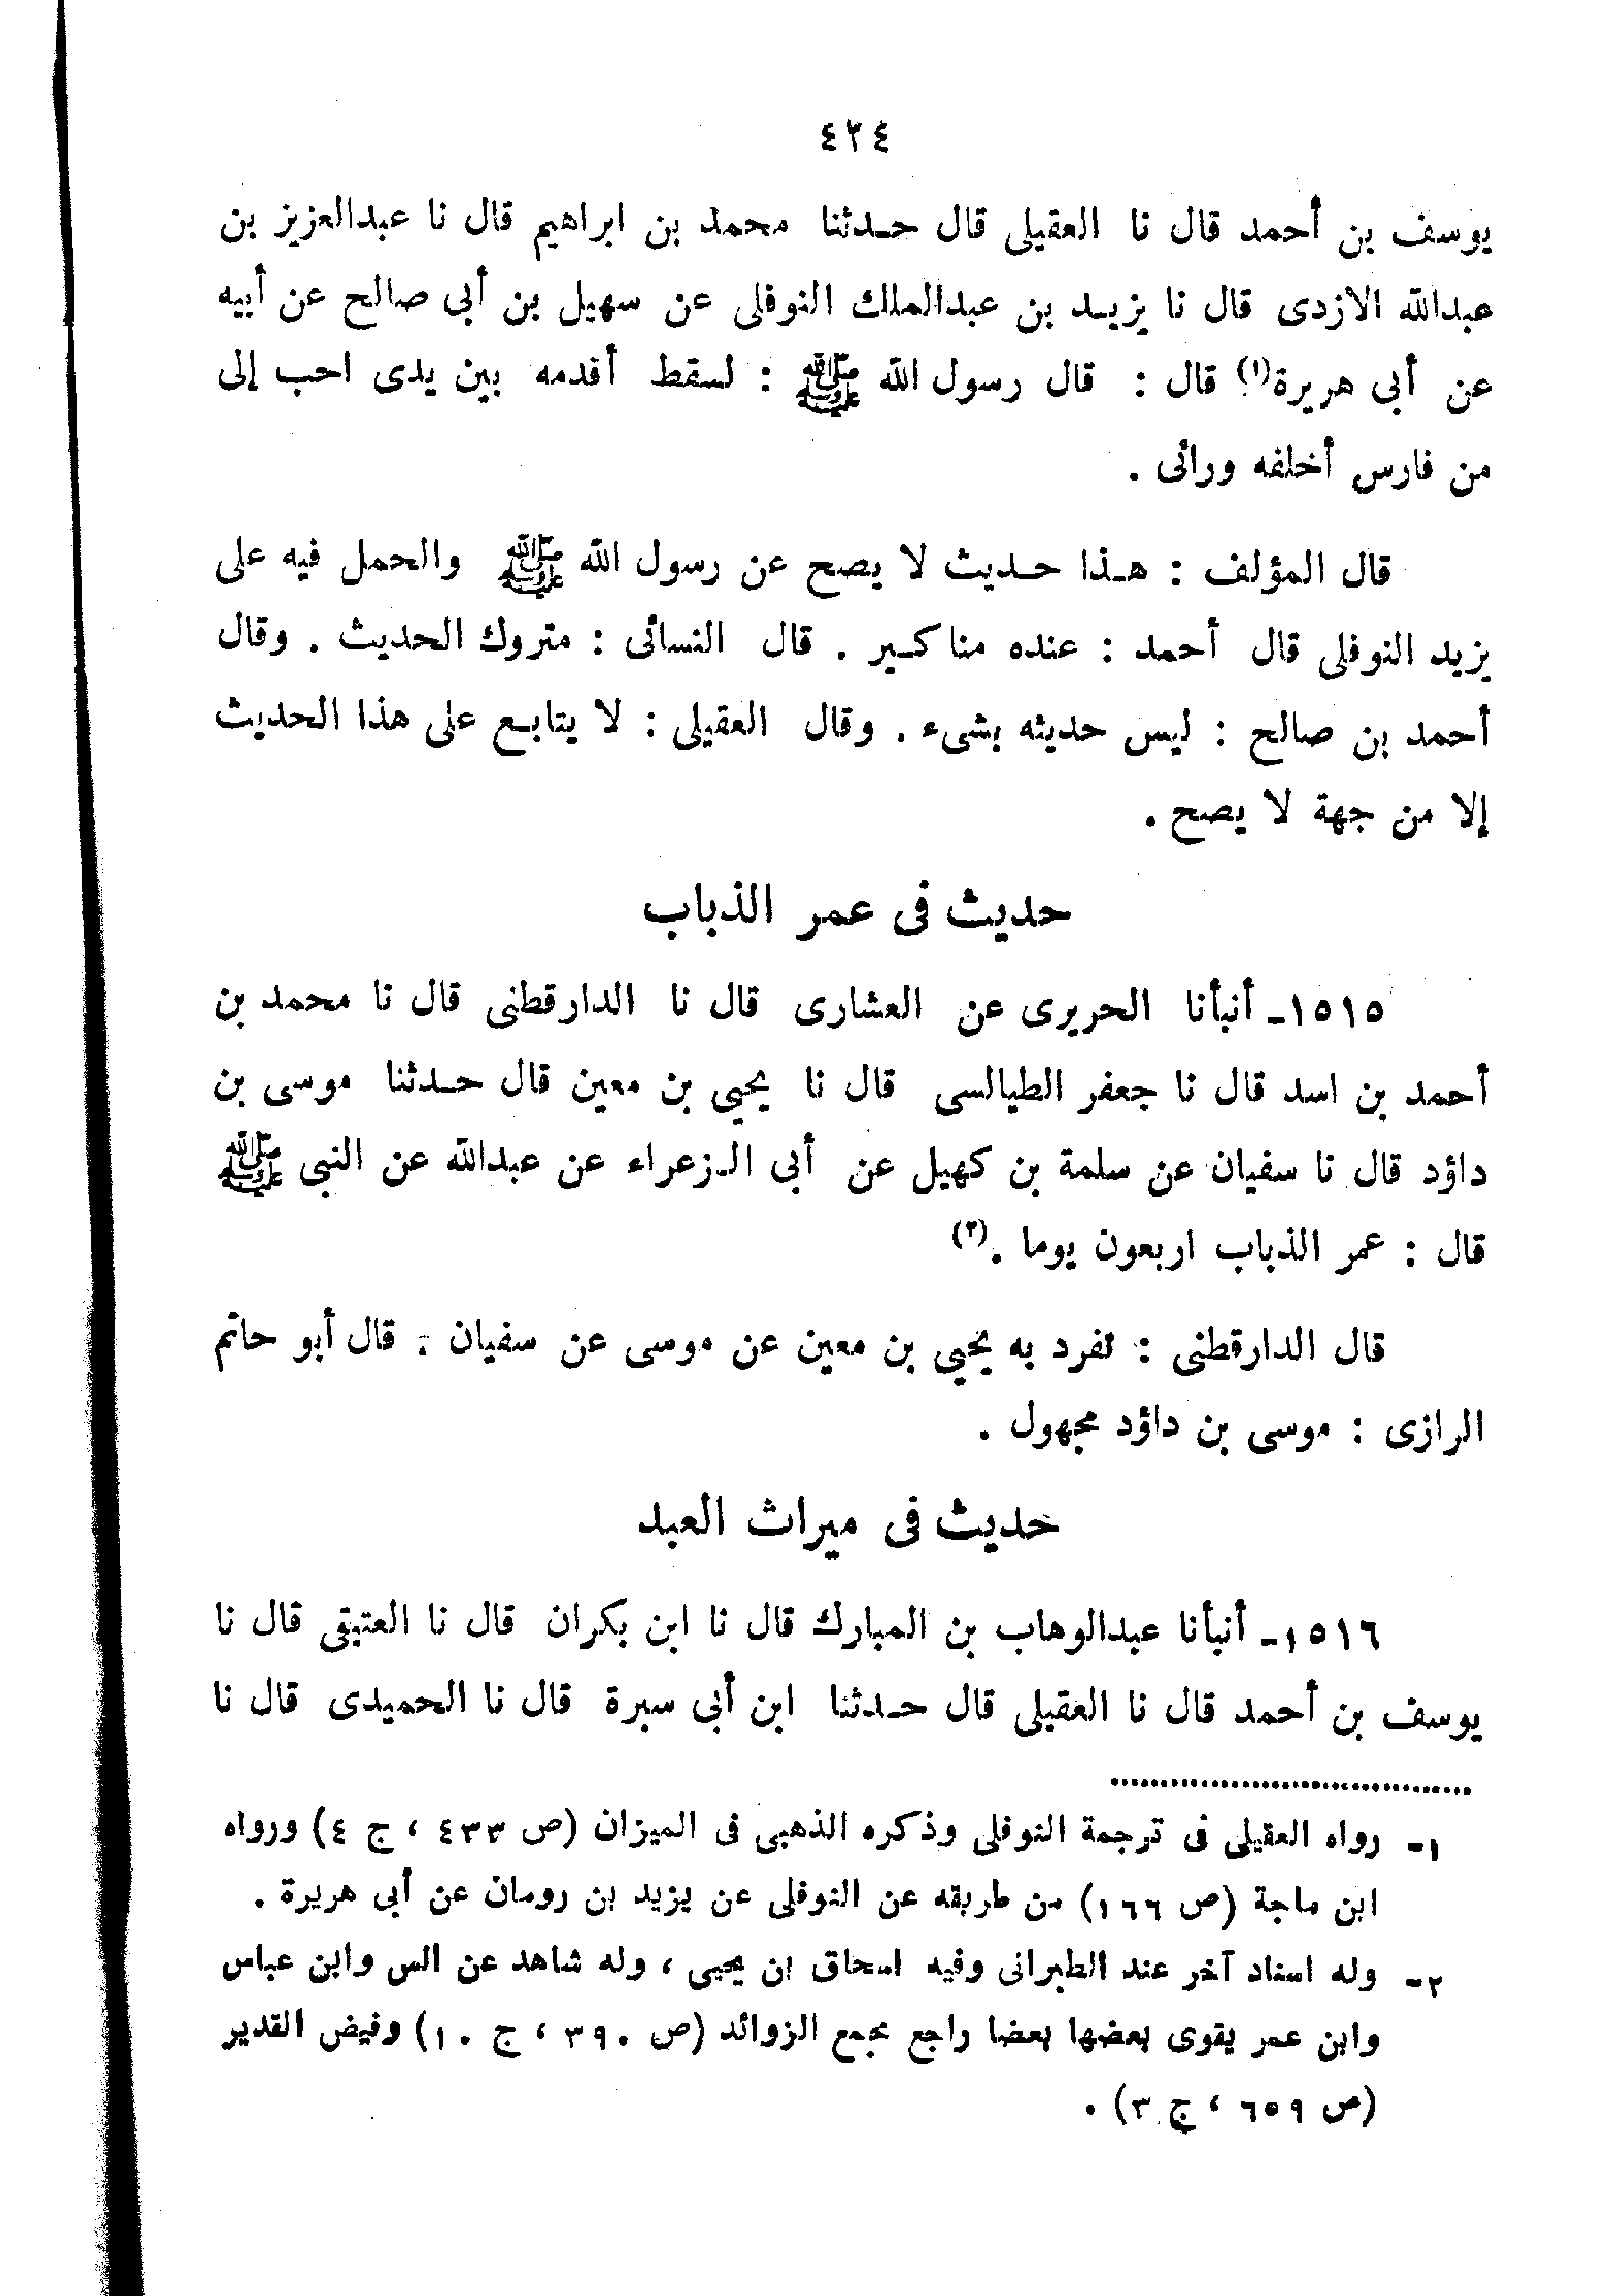 ٤٢٤
يوسف بن أحمد قال نا العقيلى قال حدثنا محمد بن ابراهيم قال نا عبدالعزيز بن
عبدالله الازدى قال نا يزيد بن عبدالملك النوفلى عن سهيل بن أبى صالح عن أبيه
عن أبى هريرة(١) قال : قال رسول الله ﷺ : لسقط أقدمه بين يدى احب إلى
من فارس أخلفه ورائى .
قال المؤلف : هذا حديث لا يصح عن رسول الله ﷺ والحمل فيه على
يزيد النوفلى قال أحمد : عنده مناكير . قال النسائى : متروك الحديث . وقال
أحمد بن صالح : ليس حديثه بشىء . وقال العقيلى : لا يتابع على هذا الحديث
إلا من جهة لا يصح .
حديث فى عمر الذباب
١٥١٥ـ أنبأنا الحريرى عن العشارى قال نا الدارقطنى قال نا محمد بن
أحمد بن اسد قال نا جعفر الطيالسى قال نا يحيى بن معين قال حدثنا موسى بن
داؤد قال نا سفيان عن سلمة بن كهيل عن أبى الزعراء عن عبدالله عن النبى ﷺ
قال : عمر الذباب اربعون يوما .(٢)
قال الدارقطنى : تفرد به يحيى بن معين عن موسى عن سفيان . قال أبو حاتم
الرازى : موسى بن داؤد مجهول .
حديث فى ميراث العبد
١٥١٦ـ أنبأنا عبدالوهاب بن المبارك قال نا ابن بكران قال نا العتيقى قال نا
يوسف بن أحمد قال نا العقيلى قال حدثنا ابن أبى سبرة قال نا الحميدى قال نا
١ـ رواه العقيلى فى ترجمة النوفلى وذكره الذهبى فى الميزان (ص ٤٣٣ ، ج ٤) ورواه
ابن ماجة (ص ١٦٦) من طريقه عن النوفلى عن يزيد بن رومان عن أبى هريرة .
٢ـ وله اسناد آخر عند الطبرانى وفيه اسحاق ابن يحيى ، وله شاهد عن انس وابن عباس
وابن عمر يقوى بعضها بعضا راجع مجمع الزوائد (ص ٣٩٠ ، ج ١٠) وفيض القدير
(ص ٦٥٩ ، ج ٣) .